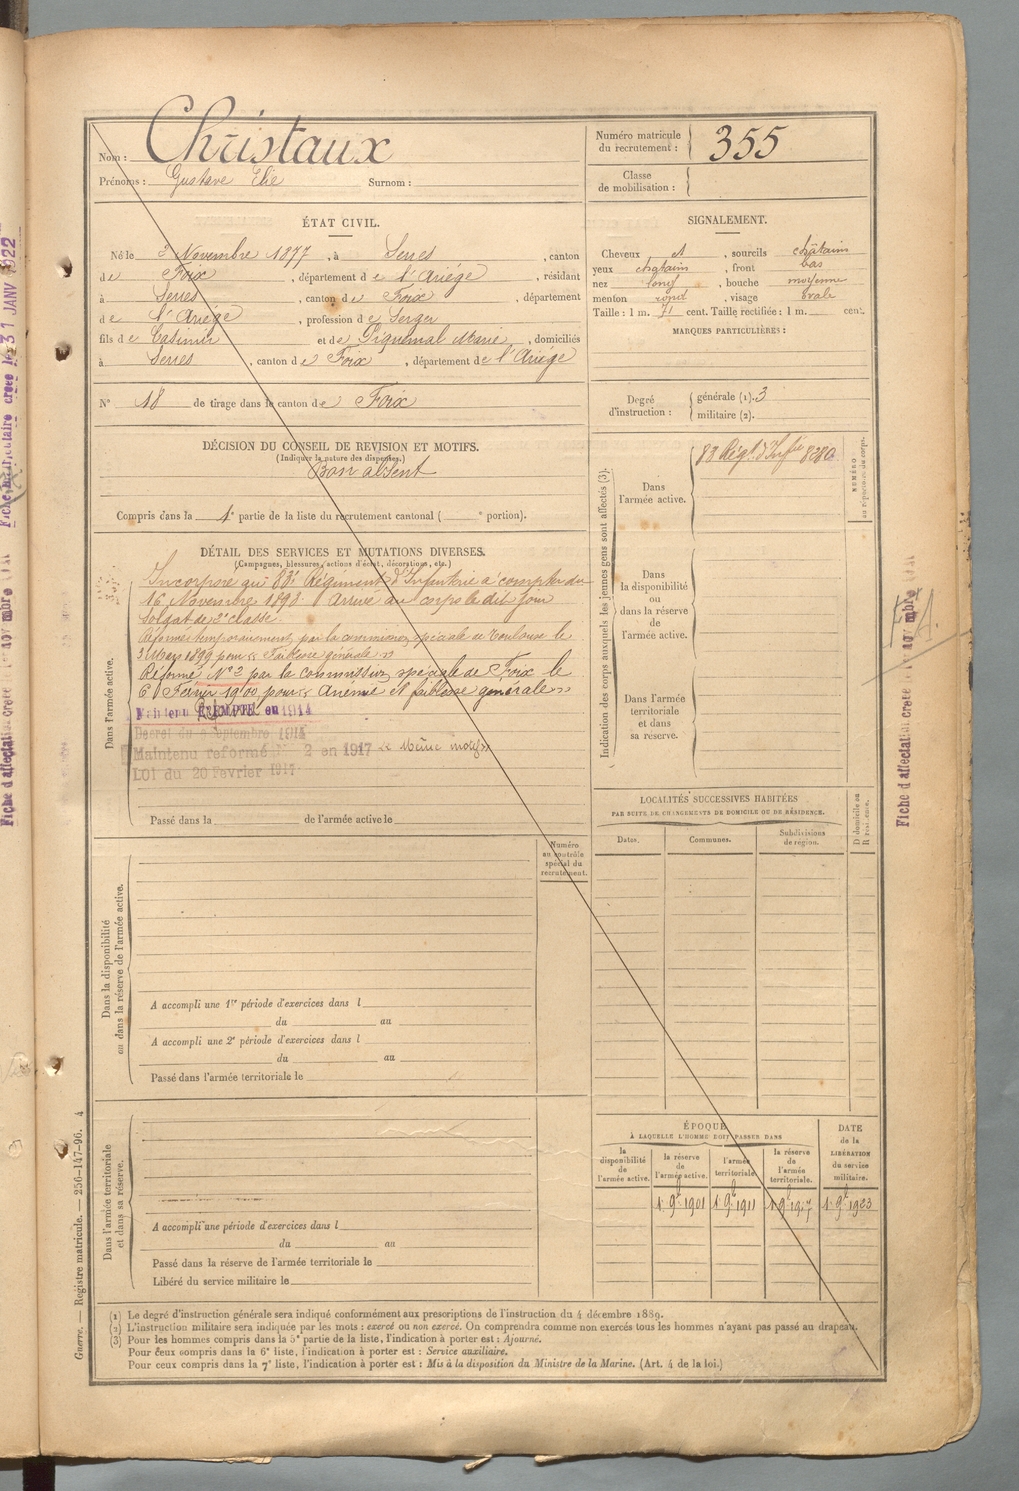 Nom : Christaux
Prénoms : Gustave Elie Surnom :
Numéro matricule du recrutement : 355
Classe de mobilisation :
ÉTAT CIVIL.
Né le 3 Novembre 1877, à Serres, canton
de Foix, département de l'Ariège, résidant
à Serres, canton de Foix, département
de l'Ariège, profession de
fils de Casimir et de Piquemal Marie, domiciliés
à Serres, canton de Foix, département de l'Ariège
N° 18 de tirage dans le canton de Foix
SIGNALEMENT.
Cheveux et, sourcils châtains
yeux châtains, front bas
nez long, bouche moyenne
menton rond, visage ovale
Taille : 1 m. 71 cent. Taille rectifiée : 1 m. cent.
MARQUES PARTICULIÈRES :
Degré d'instruction : générale (1). 3
militaire (2).
DÉCISION DU CONSEIL DE REVISION ET MOTIFS.
(Indiquer la nature des dispenses.)
Bon absent
Compris dans la 1e partie de la liste du recrutement cantonal ( e portion).
DÉTAIL DES SERVICES ET MUTATIONS DIVERSES.
(Campagnes, blessures, actions d'éclat, décorations, etc.)
Dans l'armée active.
Incorporé au 83e Régiment d'Infanterie à compter du
16 Novembre 1898. Arrivé au corps le dit jour
soldat de 2e classe.
Réformé temporairement par la commission spéciale de Toulouse le
Mars 1899 pour « Faiblesse générale »
Réformé N° 2 par la commission spéciale de Foix le
6 Février 1900 pour « Anémie et faiblesse générale »
Maintenu EXEMPTÉ en 1914
Décret du 9 Septembre 1914
Maintenu réformé N° 2 en 1917 « Même motif »
LOI du 20 Février 1917
Passé dans la de l'armée active le
Indication des corps auxquels les jeunes gens sont affectés (3).
Dans l'armée active.
83 Régt d'Infie 8280
NUMÉRO au répertoire du corps.
Dans la disponibilité ou dans la réserve de l'armée active.
Dans l'armée territoriale et dans sa réserve.
LOCALITÉS SUCCESSIVES HABITÉES
PAR SUITE DE CHANGEMENTS DE DOMICILE OU DE RÉSIDENCE.
Dates. Communes. Subdivisions de région. D domicile ou R résidence.
Numéro au contrôle spécial du recrutement.
Dans la disponibilité ou dans la réserve de l'armée active.
A accompli une 1re période d'exercices dans l
du au
A accompli une 2e période d'exercices dans l
du au
Passé dans l'armée territoriale le
Dans l'armée territoriale et dans sa réserve.
A accompli une période d'exercices dans l
du au
Passé dans la réserve de l'armée territoriale le
Libéré du service militaire le
ÉPOQUE
À LAQUELLE L'HOMME DOIT PASSER DANS
la disponibilité de l'armée active.
la réserve de l'armée active.
l'armée territoriale.
la réserve de l'armée territoriale.
DATE de la LIBÉRATION du service militaire.
1 9e 1901 1 9e 1911 1 9e 1917 1 9e 1923
(1) Le degré d'instruction générale sera indiqué conformément aux prescriptions de l'instruction du 4 décembre 1889.
(2) L'instruction militaire sera indiquée par les mots : exercé ou non exercé. On comprendra comme non exercés tous les hommes n'ayant pas passé au drapeau.
(3) Pour les hommes compris dans la 5e partie de la liste, l'indication à porter est : Ajourné.
Pour ceux compris dans la 6e liste, l'indication à porter est : Service auxiliaire.
Pour ceux compris dans la 7e liste, l'indication à porter est : Mis à la disposition du Ministre de la Marine. (Art. 4 de la loi.)
Guerre. — Registre matricule. — 256-147-96. 4
Fiche matriculaire créée le 31 JANV 1922
Fiche d'affectation créée le
Fiche d'affectation créée le novembre